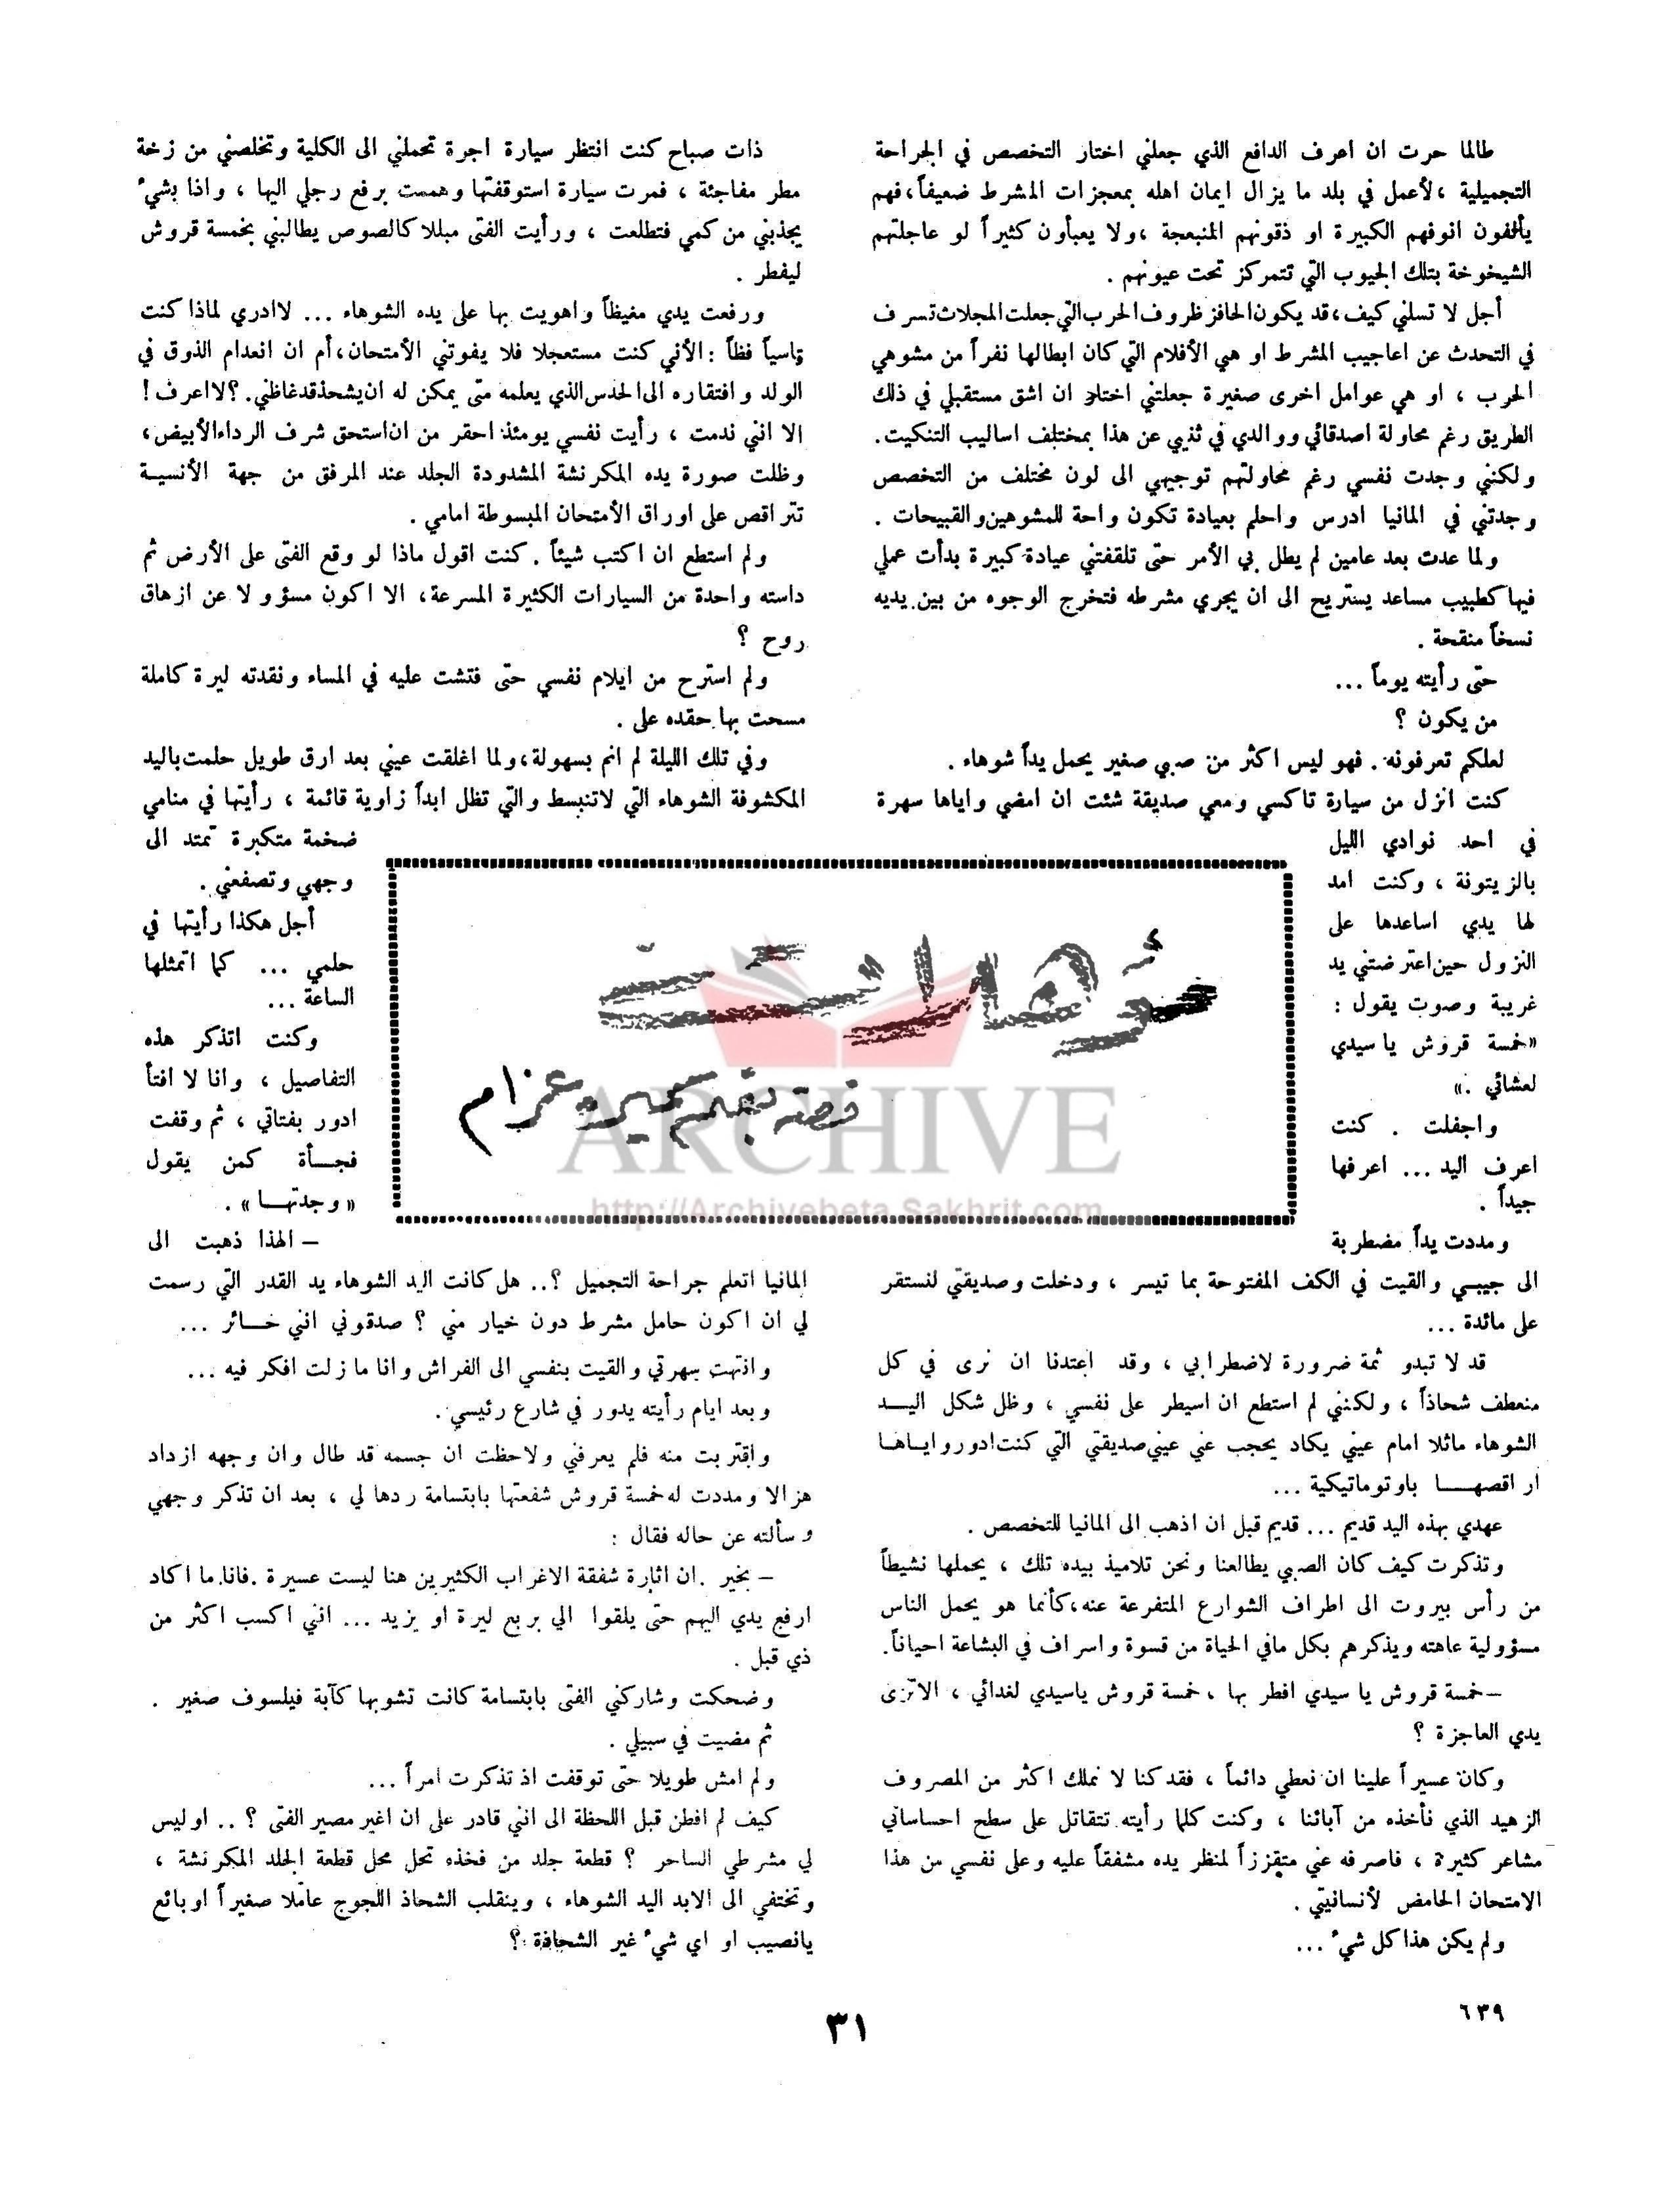 طالما حرت ان اعرف الدافع الذي جعلني اختار التخصص في الجراحة
التجميلية ، لأعمل في بلد ما يزال ايمان اهله بمعجزات المشرط ضعيفاً، فهم
يألفون انوفهم الكبيرة او ذقونهم المنبعجة ، ولا يعبأون كثيراً لو عاجلتهم
الشيخوخة بتلك الجيوب التي تتمركز تحت عيونهم .
أجل لا تسلني كيف، قد يكون الحافز ظروف الحرب التي جعلت المجلات تسرف
في التحدث عن اعاجيب المشرط او هي الأفلام التي كان ابطالها نفراً من مشوهي
الحرب ، او هي عوامل اخرى صغيرة جعلتني اختار ان اشق مستقبلي في ذلك
الطريق رغم محاولة اصدقائي ووالدي في ثنيي عن هذا بمختلف اساليب التنكيت .
ولكنني وجدت نفسي رغم محاولتهم توجيهي الى لون مختلف من التخصص
وجدتني في المانيا ادرس واحلم بعيادة تكون واحة للمشوهين والقبيحات .
ولما عدت بعد عامين لم يطل بي الأمر حتى تلقفتني عيادة كبيرة بدأت عملي
فيها كطبيب مساعد يستريح الى ان يجري مشرطه فتخرج الوجوه من بين يديه
نسخاً منقحة .
حتى رأيته يوماً ...
من يكون ؟
لعلكم تعرفونه . فهو ليس اكثر من صبي صغير يحمل يداً شوهاء .
كنت انزل من سيارة تاكسي ومعي صديقة شئت ان امضي واياها سهرة
في احد نوادي الليل
بالزيتونة ، وكنت امد
لها يدي اساعدها على
النزول حين اعترضتني يد
غريبة وصوت يقول :
«خمسة قروش يا سيدي
لعشائي .»
واجفلت . كنت
اعرف اليد ... اعرفها
جيداً .
ومددت يداً مضطربة
الى جيبي والقيت في الكف المفتوحة بما تيسر ، ودخلت وصديقتي لنستقر
على مائدة ...
قد لا تبدو ثمة ضرورة لاضطرابي ، وقد اعتدنا ان نرى في كل
منعطف شحاذاً ، ولكنني لم استطع ان اسيطر على نفسي ، وظل شكل اليد
الشوهاء ماثلا امام عيني يكاد يحجب عني عيني صديقتي التي كنت ادور واياها
اراقصها باوتوماتيكية ...
عهدي بهذه اليد قديم ... قديم قبل ان اذهب الى المانيا للتخصص .
وتذكرت كيف كان الصبي يطالعنا ونحن تلاميذ بيده تلك ، يحملها نشيطاً
من رأس بيروت الى اطراف الشوارع المتفرعة عنه، كأنما هو يحمل الناس
مسؤولية عاهته ويذكرهم بكل مافي الحياة من قسوة واسراف في البشاعة احياناً.
– خمسة قروش يا سيدي افطر بها ، خمسة قروش ياسيدي لغدائي ، الا ترى
يدي العاجزة ؟
وكان عسيراً علينا ان نعطي دائماً ، فقد كنا لا نملك اكثر من المصروف
الزهيد الذي نأخذه من آبائنا ، وكنت كلما رأيته تتقاتل على سطح احساساتي
مشاعر كثيرة ، فاصرفه عني متقززاً لمنظر يده مشفقاً عليه وعلى نفسي من هذا
الامتحان الحامض لأنسانيتي .
ولم يكن هذا كل شيء ...
ذات صباح كنت انتظر سيارة اجرة تحملني الى الكلية وتخلصني من زخة
مطر مفاجئة ، فمرت سيارة استوقفتها وهممت برفع رجلي اليها ، واذا بشيء
يجذبني من كمي فتطلعت ، ورأيت الفتى مبللا كالصوص يطالبني بخمسة قروش
ليفطر .
ورفعت يدي مغيظاً واهويت بها على يده الشوهاء ... لا ادري لماذا كنت
قاسياً فظاً : الأني كنت مستعجلا فلا يفوتني الأمتحان، أم ان انعدام الذوق في
الولد وافتقاره الى الحدس الذي يعلمه متى يمكن له ان يشحذ قد غاظني . ؟ لا اعرف !
الا انني ندمت ، رأيت نفسي يومئذ احقر من ان استحق شرف الرداء الأبيض ،
وظلت صورة يده المكرنشة المشدودة الجلد عند المرفق من جهة الأنسية
تتراقص على اوراق الأمتحان المبسوطة امامي .
ولم استطع ان اكتب شيئاً . كنت اقول ماذا لو وقع الفتى على الأرض ثم
داسته واحدة من السيارات الكثيرة المسرعة، الا اكون مسؤولا عن ازهاق
روح ؟
ولم استرح من ايلام نفسي حتى فتشت عليه في المساء ونقدته ليرة كاملة
مسحت بها حقده على .
وفي تلك الليلة لم انم بسهولة، ولما اغلقت عيني بعد ارق طويل حلمت باليد
المكشوفة الشوهاء التي لا تنبسط والتي تظل ابداً زاوية قائمة ، رأيتها في منامي
ضخمة متكبرة تمتد الى
وجهي وتصفعني .
أجل هكذا رأيتها في
حلمي ... كما اتمثلها
الساعة ...
وكنت اتذكر هذه
التفاصيل ، وانا لا افتأ
ادور بفتاتي ، ثم وقفت
فجأة كمن يقول
« وجدتها » .
– الهذا ذهبت الى
المانيا اتعلم جراحة التجميل ؟.. هل كانت اليد الشوهاء يد القدر التي رسمت
لي ان اكون حامل مشرط دون خيار مني ؟ صدقوني انني حائر ...
وانتهت سهرتي والقيت بنفسي الى الفراش وانا ما زلت افكر فيه ...
وبعد ايام رأيته يدور في شارع رئيسي .
واقتربت منه فلم يعرفني ولاحظت ان جسمه قد طال وان وجهه ازداد
هزالا ومددت له خمسة قروش شفعتها بابتسامة ردها لي ، بعد ان تذكر وجهي
وسألته عن حاله فقال :
– بخير . ان اثارة شفقة الاغراب الكثيرين هنا ليست عسيرة . فانا ما اكاد
ارفع يدي اليهم حتى يلقوا الي بربع ليرة او يزيد ... انني اكسب اكثر من
ذي قبل .
وضحكت وشاركني الفتى بابتسامة كانت تشوبها كآبة فيلسوف صغير .
ثم مضيت في سبيلي .
ولم امش طويلا حتى توقفت اذ تذكرت امراً ...
كيف لم افطن قبل اللحظة الى انني قادر على ان اغير مصير الفتى ؟ .. اوليس
لي مشرطي الساحر ؟ قطعة جلد من فخذه تحل محل قطعة الجلد المكرنشة ،
وتختفي الى الابد اليد الشوهاء ، وينقلب الشحاذ اللجوج عاملا صغيراً او بائع
يانصيب او اي شيء غير الشحاذة ؟
قصة بقلم سميرة عزام
ARCHIVE
http://Archivebeta.Sakhrit.com
٦٣٩
٣١